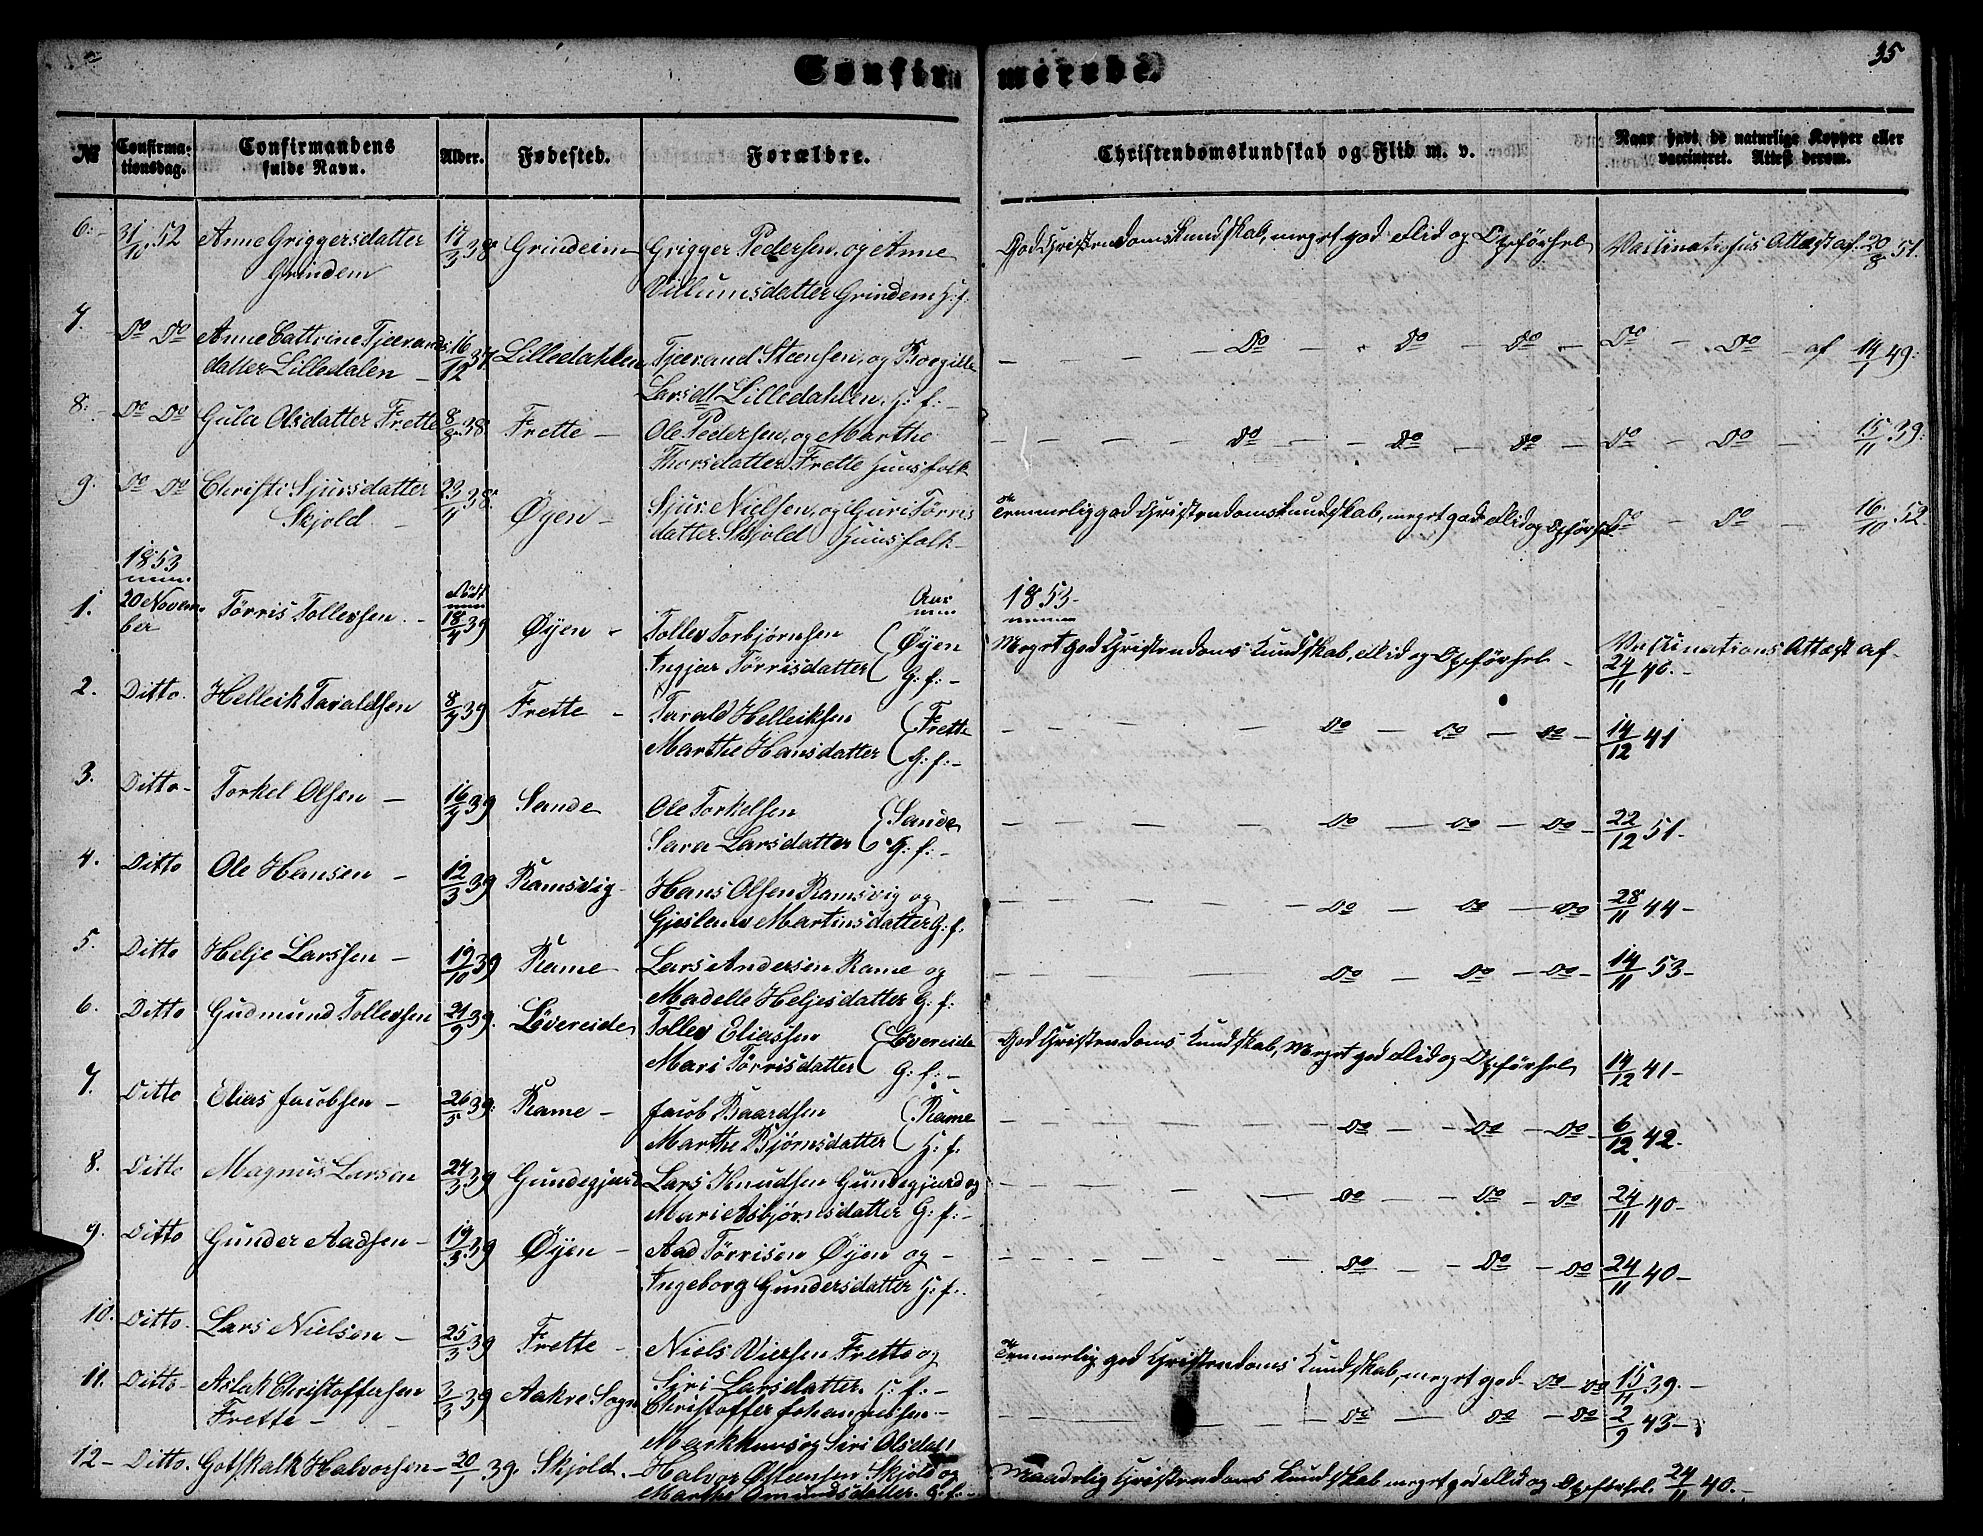 35
Confirmerede.
№
Confirma-
tionsdag.
Confirmandens
fulde Navn.
Alder.
Fødested.
Forældre.
Christendomskundskab og Flid m. v.
Naar havt de naturlige Kopper eller
vaccineret. Attest derom.
6. 31/10 52 Anne Griggersdatter 17/3 38 Grindeim Grigger Pedersen, og Anne God Christendomskundskab, meget god Flid og Opførsel Vaccinations Attest af 20/8 51.
Grindem Villumsdatter Grindem H: f.
7. Do Do Anne Cattrine Tjerands 16/12 37 Lilledahlen Tjerand Steensen, og Borgille - Do - Do - Do - Do - Do - af 14/7 49.
datter Lilledalen Larsdt Lilledahlen. H: f:
8. Do Do Gula Olsdatter Frette 8/8 38 Frette Ole Pedersen, og Marthe - Do - Do - Do - Do - Do - 15/11 39.
Thorsdatter Frette Huusfolk
9. Do Do Christi Sjursdatter 23/1 38. Øyen Sjur Nielsen, og Guri Tørris Temmelig god Christendomskundskab, meget god Flid og Opførsel Do - Do - 16/10 52
Skjold datter Skjold Huusfolk
1853
Født
1853
1. 20 Novem- Tørris Tollevsen 18/4 39 Øyen Tollev Torbjørnsen Øyen Meget god Christendoms Kundskab, Flid og Opførsel Vaccinations Attest af
ber Ingjar Tørrisdatter H: f: 24/11 40.
2. Ditto Helleik Taraldsen 8/7 39 Frette Tarald Helleiksen Frette - Do - Do - Do - 14/12 41
Marthe Hansdatter H: f:
3. Ditto Torkel Olsen 16/7 39 Sande Ole Torkelsen Sande - Do - Do - Do - 22/12 51
Sara Larsdatter H: f:
4. Ditto Ole Hansen 12/3 39 Ramsvig Hans Olsen Ramsvig og - Do - Do - Do 28/11 44
Martinsdatter H: f.
5. Ditto Helje Larssen 19/10 39 Rame Lars Andersen Rame og - Do - Do - Do - 14/11 53
Madelle Heljesdatter H: f:
6. Ditto Gudmund Tollevsen 21/9 39. Løvereide Tollev Eliassen Løvereide God Christendoms Kundskab, Meget god Flid og Opførsel 14/12 41
Mari Tørrisdatter H: f:
7. Ditto Elias Jacobsen 26/5 39. Rame Jacob Baardsen Rame - Do - Do - Do 6/12 42
Marthe Bjørnsdatter H: f.
8. Ditto Magnus Larsen 24/3 39 Gundegjerd Lars Knudsen Gundegjerd og - Do - Do - Do 24/11 40
Mari Asbjørnsdatter H: f:
9. Ditto Gunder Aadsen 19/3 39 Øyen Aad Tørrisen Øyen og - Do - Do - Do 24/11 40
Ingeborg Gundersdatter H: f.
10. Ditto Lars Nielsen 25/3 39 Frette Niels Viersen Frette og Temmelig god Christendoms Kundskab, meget god Do - Do 15/11 39.
Siri Larsdatter H: f:
11. Ditto Aslak Christoffersen 3/3 39 Aakre Sogn Christoffer Johannessen - Do - Do - Do 2/9 43
Frette og Siri Olsdat
12 Ditto. Gotskalk Halvorsen 20/1 39. Skjold Halvor Østensen Skjold og Maadelig Christendoms Kundskab meget god Flid og Opførsel. 24/11 40.
Marthe Omundsdatter. H: f: